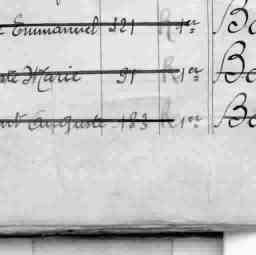 Emmanuel 221 R 1er Bo
te Marie 91 R 1er Bo
nt Auguste 183 R 1er Bo